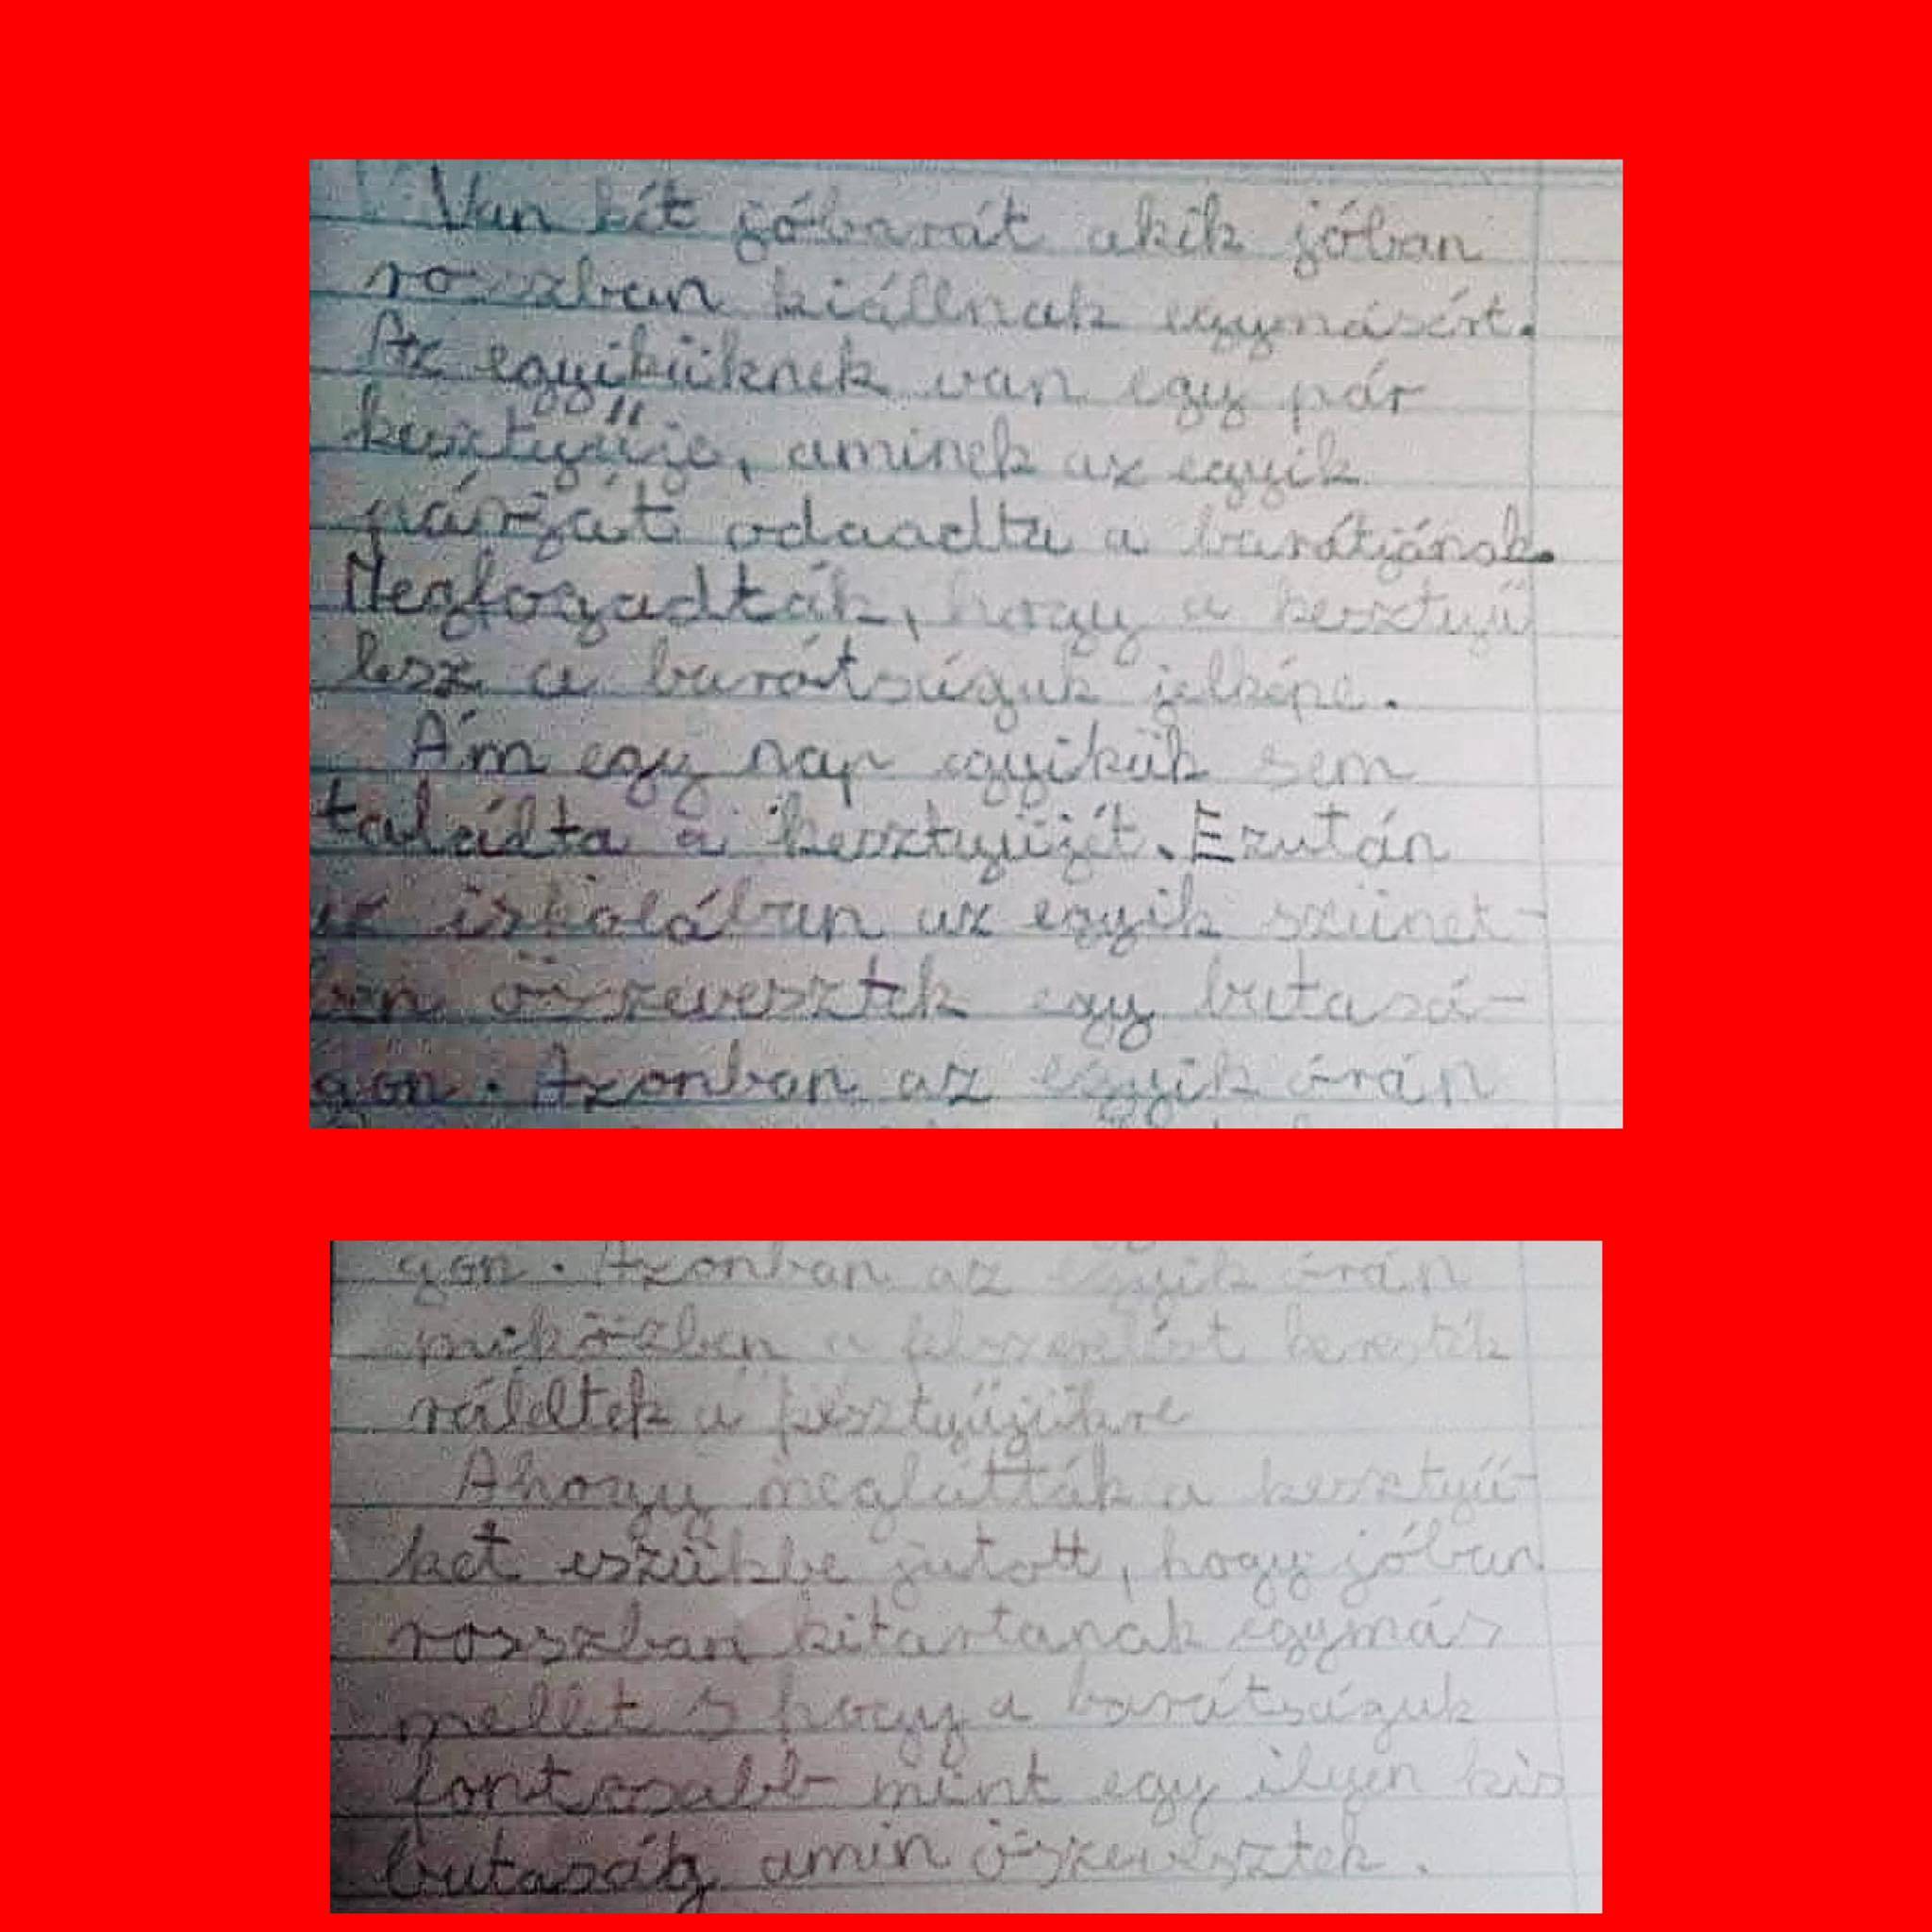 Van két jóbarát akik jóban
rosszban kiállnak egymásért.
Az egyiküknek van egy pár
kesztyűje, aminek az egyik
párját odaadta a barátjának.
Megfogadták, hogy a kesztyű
lesz a barátságuk jelképe.
Ám egy nap egyikük sem
találta a kesztyűjét. Ezután
az iskolában az egyik szünet-
ben öszevesztek egy butasá-
gon. Azonban az egyik órán
gon. Azonban az egyik órán
miközben a felszerelést keresték
ráleltek a kesztyűjükre
Ahogy meglátták a kesztyű-
ket eszükbe jutott, hogy jóban
rosszban kitartanak egymás
mellet s hogy a barátságuk
fontosabb mint egy ilyen kis
butaság amin öszevesztek.